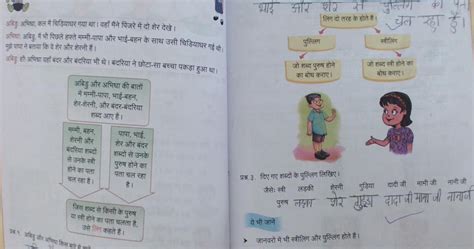 अबिदु: अभिधा, कल मैं चिड़ियाघर गया था। वहाँ मैंने पिंजरे में दो शेर देखे।
अभिधा: अबिदु, मैं भी पिछले हफ्ते मम्मी-पापा और भाई-बहन के साथ उसी चिड़ियाघर गई थी।
मुझे पापा ने बताया कि वे शेर और शेरनी हैं।
अबिदु: हाँ अभिधा वहाँ बंदर और बंदरिया भी थे। बंदरिया ने छोटा-सा बच्चा पकड़ा हुआ था।
अबिदु और अभिधा की बातों
में मम्मी-पापा, भाई-बहन,
शेर-शेरनी, और बंदर-बंदरिया
शब्द आए हैं।
मम्मी, बहन,
शेरनी और
बंदरिया शब्दों
से उनके स्त्री
होने का पता
चल रहा
है।
पापा, भाई,
शेर और बंदर
शब्दों से उनके
पुरुष होने का
पता चल रहा
है।
जिस शब्द से किसी के पुरुष
या स्त्री होने का पता चलता है,
उसे लिंग कहते हैं।
भाई और शेर से पुल्लिंग का
चल रहा है
लिंग दो तरह के होते हैं
पुल्लिंग
स्त्रीलिंग
जो शब्द पुरुष होने
का बोध कराए।
जो शब्द स्त्री होने
का बोध कराए।
प्रश्न 3. दिए गए शब्दों के पुल्लिंग लिखिए।
जैसे: स्त्री लड़की शेरनी गुड़िया दादी जी मामी जी नानी जी
पुरुष लड़का शेर गुड्डा दादा जी मामा जी नानाजी
ये भी जानें
जानवरों में भी स्त्रीलिंग और पुल्लिंग होते हैं।